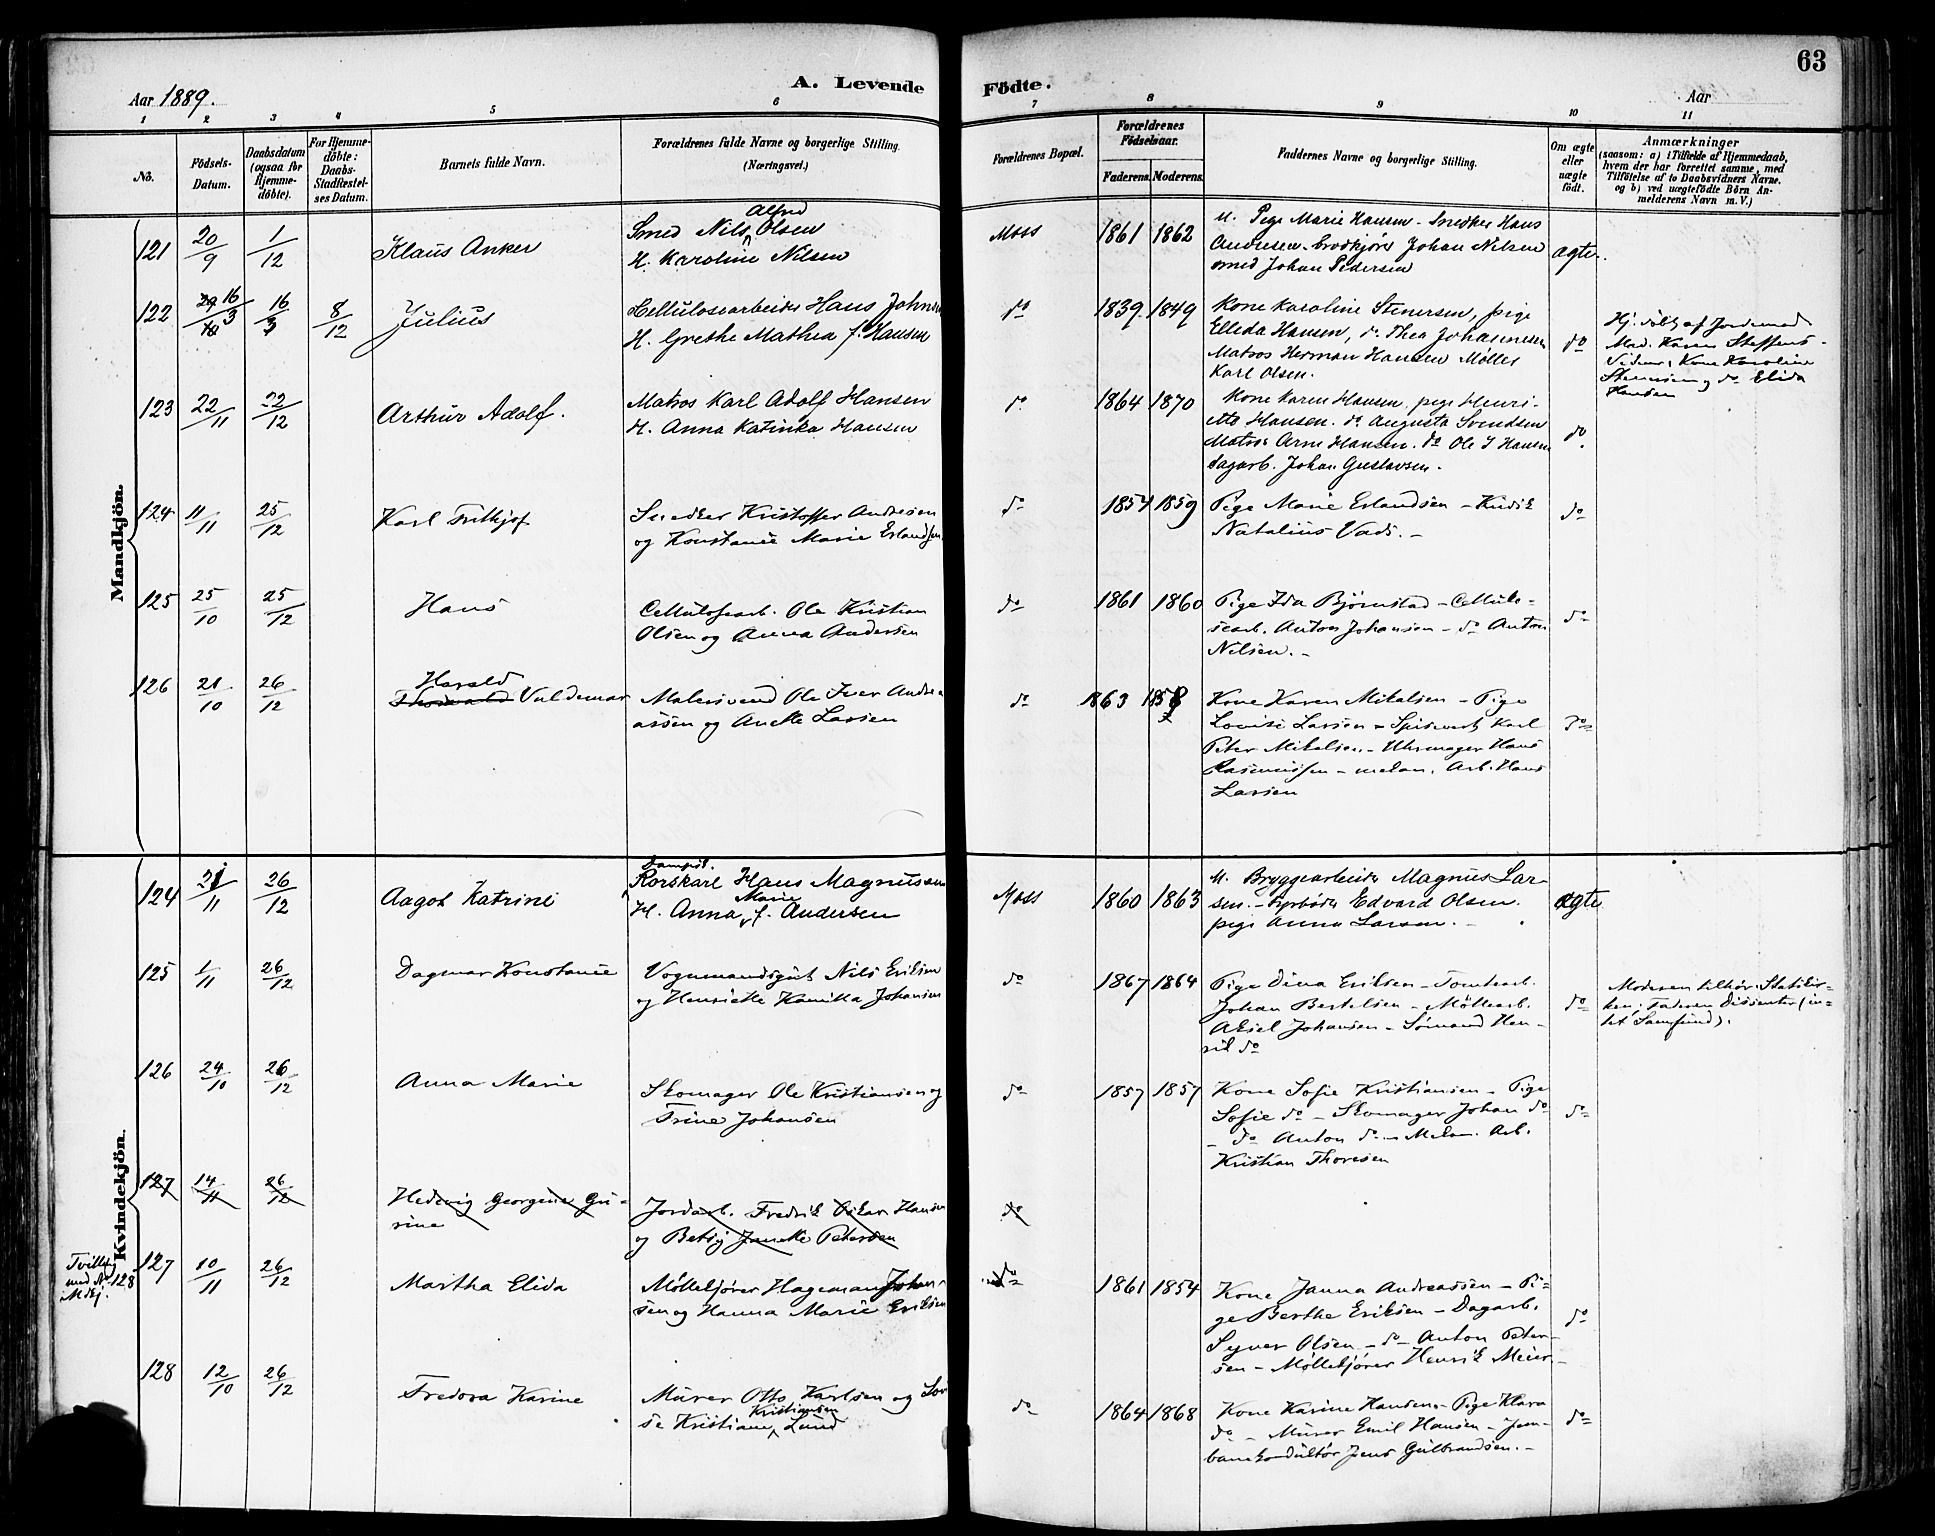 63
A. Levende Födte.
Aar 1889.
Aar
1 2 3 4 5 6 7 8 9 10 11
No.
Födsels-
Datum.
Daabsdatum
(ogsaa for
Hjemme-
döbte).
For Hjemme-
döbte:
Daabs-
Stadfæstel-
ses Datum.
Barnets fulde Navn.
Forældrenes fulde Navne og borgerlige Stilling.
(Næringsvei.)
Forældrenes Bopæl.
Forældrenes
Födselsaar.
Faderens. Moderens.
Faddernes Navne og borgerlige Stilling.
Om ægte
eller
uægte
födt.
Anmærkninger
(saasom: a) i Tilfælde af Hjemmedaab,
hvem der har forrettet samme, med
Tilföielse af to Daabsvidners Navne.
og b) ved uægtefödte Börn An-
melderens Navn m. V.)
Mandkjön.
121 20/9 1/12 Klaus Anker
Alfred
Smed Nils Olsen
H. Karoline Nilsen
Moss 1861 1862
M. Pige Marie Hansen - Snedker Hans
Andresen - Johan Nilsen
smed Johan Pedersen
ægte.
122 16/3 16/3 8/12 Julius
Cellulosearbeider Hans Johns
H. Grethe Mathea f. Hansen
do 1839 1849
Kone Karoline Stenersen, pige
Elleda Hansen, do Thea Johannesen
Matros Herman Hansen Møller
Karl Olsen.
do
Hj. döbt af Jordemod
Mad. Karen Steffens-
Vidner, Kone Karoline
Stenersen og do Elida
Hansen
123 22/11 22/12 Arthur Adolf.
Matros Karl Adolf Hansen
H. Anna Katinka Hansen
do 1864 1870
Kone Karen Hansen, pige Henri-
 Hansen. do Augusta Svendsen
Matros Arne Hansen. do Ole J Hansen
dagarb. Johan Gustavsen.
do
124 11/11 25/12 Karl Frithjof
Snedker Kristoffer Andresen
og Konstance Marie Erlandsen
do 1854 1859
Pige Marie Erlandsen - Kudsk
Natalius Vads. -
do
125 25/10 25/12 Hans
Cellulosearb. Ole Kristian
Olsen og Anna Andersen
do 1861 1860
Pige Ida Bjørnstad - Cellulo-
searb. Anton Johansen - do Anton
Nilsen. -
do
Harald
126 21/10 26/12 Thorvald Valdemar
Malersvend Ole Iver Andre
assen og Anette Larsen
do 1863 185
Kone Karen Mikalsen - Pige
Lovise Larsen - Karl
Peter Mikalsen - Uhrmager Hans
Rasmussen - mekan. Arb. Hans
Larsen
do
Kvindekjön.
124 21/11 26/12 Aagot Katrine
Dampsk.
Rorskarl Hans Magnussen
Marie
H. Anna f. Andersen
Moss 1860 1863
M. Bryggearbeider Magnus Lar-
sen. - Fyrbøder Edvard Olsen.
pige Anna Larsen. -
ægte
125 1/11 26/12 Dagmar Konstance
Vognmandsgut Nils Eriksen
og Henriette Kamilla Johansen
do 1867 1864
Pige Dina Eriksen - Tomtearb.
Johan Bertelsen - Møllearb.
Aksel Johansen - Sømand Hen-
rik do
do
Moderen tilhør. Statskir-
ken; Faderen Dissenter (in-
tet Samfund).
126 24/10 26/12 Anna Marie
Skomager Ole Kristiansen og
Trine Johansen
do 1857 1857
Kone Sofie Kristiansen - Pige
Sofie do - Skomager Johan do
- do Anton do - Mekan. Arb.
Kristian Thoresen
do
127 14/11 26/12 Hedevig Georgine Gu-
rine
Jordarb. Fredrik Oskar Hansen
og Betsy Janette Petersen
do
Tvilling
med No 128
i Mdkj.
127 10/11 26/12 Martha Elida
Møllekjører Hageman Johan-
sen og Hanna Marie Eriksen
do 1861 1854
Kone Janna Andreassen - Pi-
ge Berthe Eriksen - Dagarb.
Syver Olsen - do Anton Peter-
sen - Møllekjører Henrik Meier -
do
128 12/10 26/12 Fredora Karine
Murer Otto Karlsen og Lov
Kristiansen
se Kristiane Lund
do 1864 1868
Kone Karine Hansen - Pige Klara
do - Murer Emil Hansen - Jern-
banekonduktør Jens Gulbrandsen. -
do